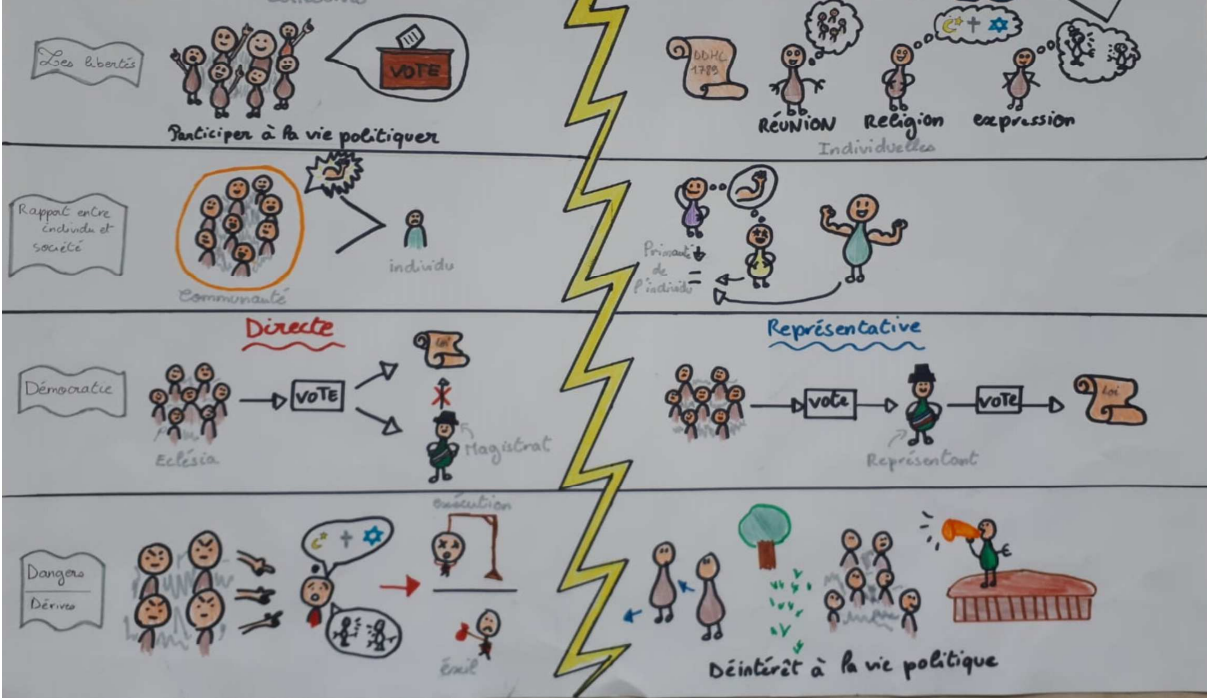 Les libertés
VOTE
Participer à la vie politiquer
DDHC
1789
RÉUNION
Religion
expression
Individuelles
Rapport entre
individu et
société
Communauté
individu
Primauté
de
l'individu
=
Démocratie
Directe
Eclésia
VOTE
loi
Magistrat
Représentative
vote
Représentant
VOTE
Loi
Dangers
Dérives
exécution
éxil
Déintérêt à la vie politique